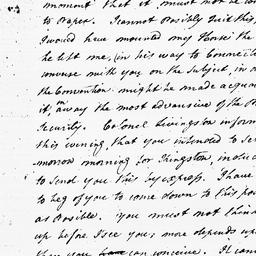 moment that it must not be
to Paper. I cannot Possibly
I would have mounted my Horse the
he left me, (in his way to Councile
converse with you on the Subject, in
the Convention might be made acqua
it, in away the most advansive of the
Security. Colonel Livingston inform
this evening, that you intended to
morrow morning for Kingston,
to send you this by express. I have
to beg of you to come down to this
as Possible. you must not think
up before I see you; more depends up
than you can conceive. It can